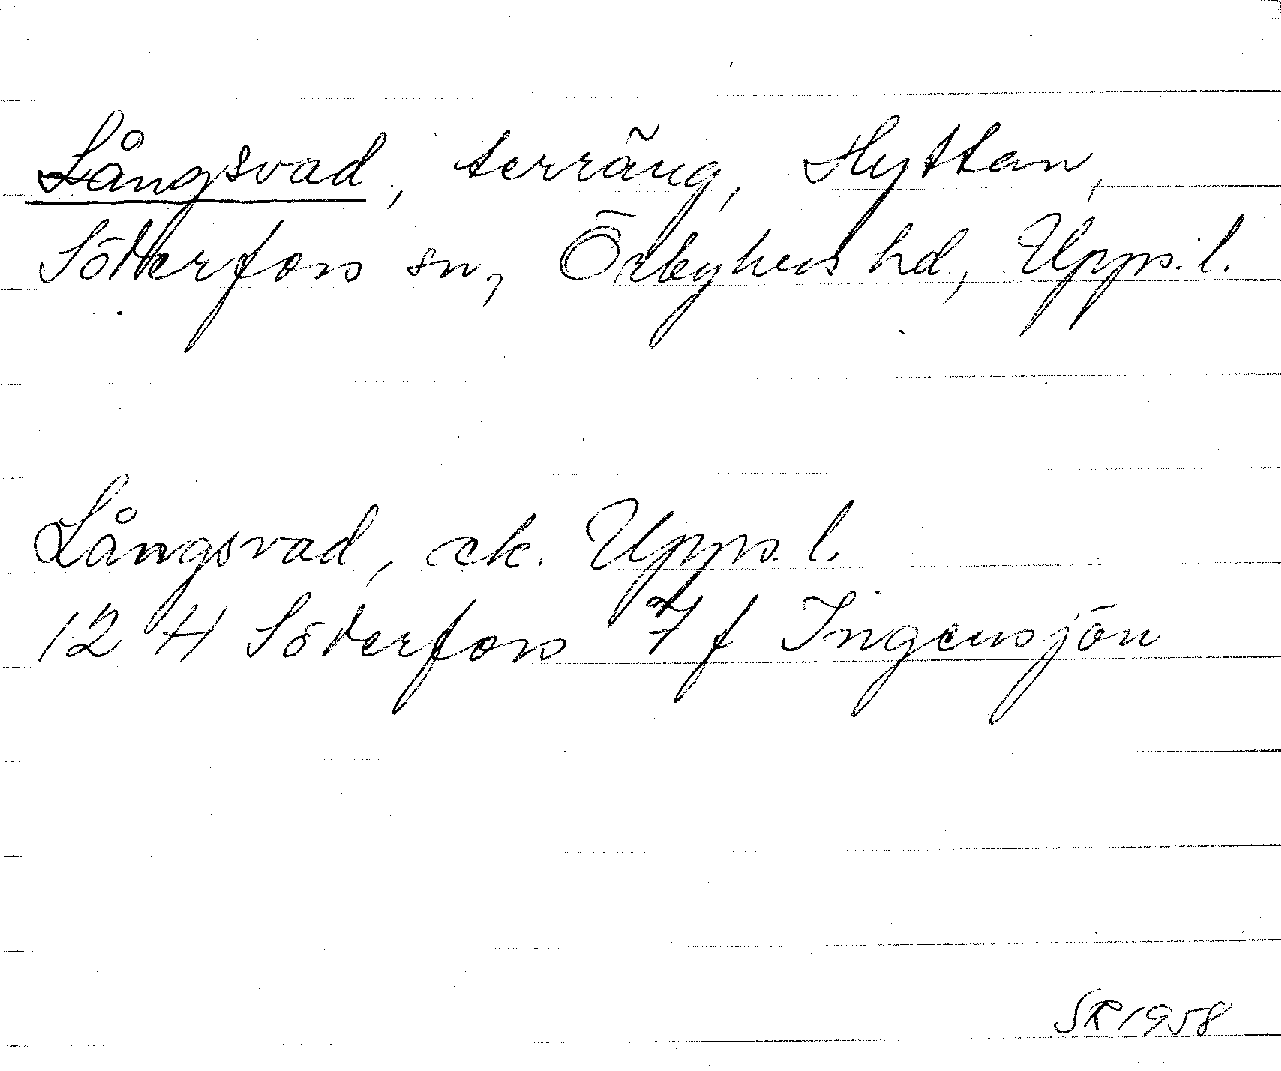 Långsvad, terräng, Hyttan,
Söderfors sn, Örbyhus hd, Upps. l.
Långsvad, ek. Upps. l.
12 H Söderfors 7 f Ingensjön
SR 1958